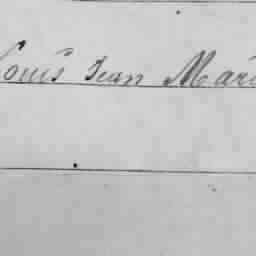 Louis Jean Mari